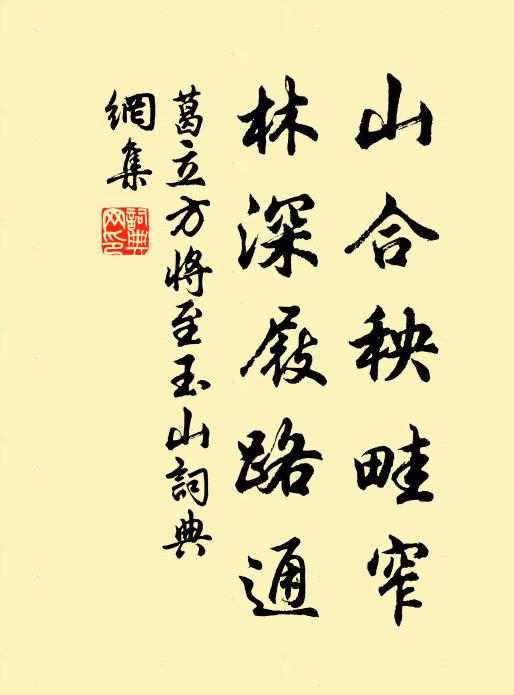 山合秧畦窄
林深屐路通
葛立方將至玉山詞典
網集
詞典
网印